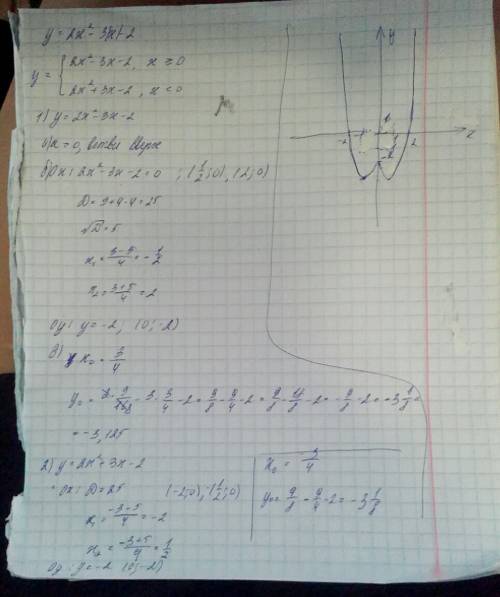 y = 2x² - 3|x| - 2
y = { 2x² - 3x - 2, x ≥ 0
2x² + 3x - 2, x < 0
1) y = 2x² - 3x - 2
= 0, ветви вверх
б) Ox: 2x² - 3x - 2 = 0 ; (½; 0), (2; 0)
D = 9 + 4·4 = 25
√D = 5
x₁ = (3-5)/4 = -½
x₂ = (3+5)/4 = 2
oy: y = -2; (0; -2)
x₀ = 3/4
- 3 · 3/4 - 2 = 9/8 - 9/4 - 2 = 9/8 - 18/8 - 2 = -9/8 - 2 = -3 1/8 =
= -3,125
2) y = 2x² + 3x - 2
Ox: D = 25 (-2; 0), (½; 0)
x₁ = (-3-5)/4 = -2
x₂ = (-3+5)/4 = ½
oy: y = -2 (0; -2)
x₀ = -3/4
y₀ = 9/8 - 9/4 - 2 = -3 1/8
y
x
-2
2